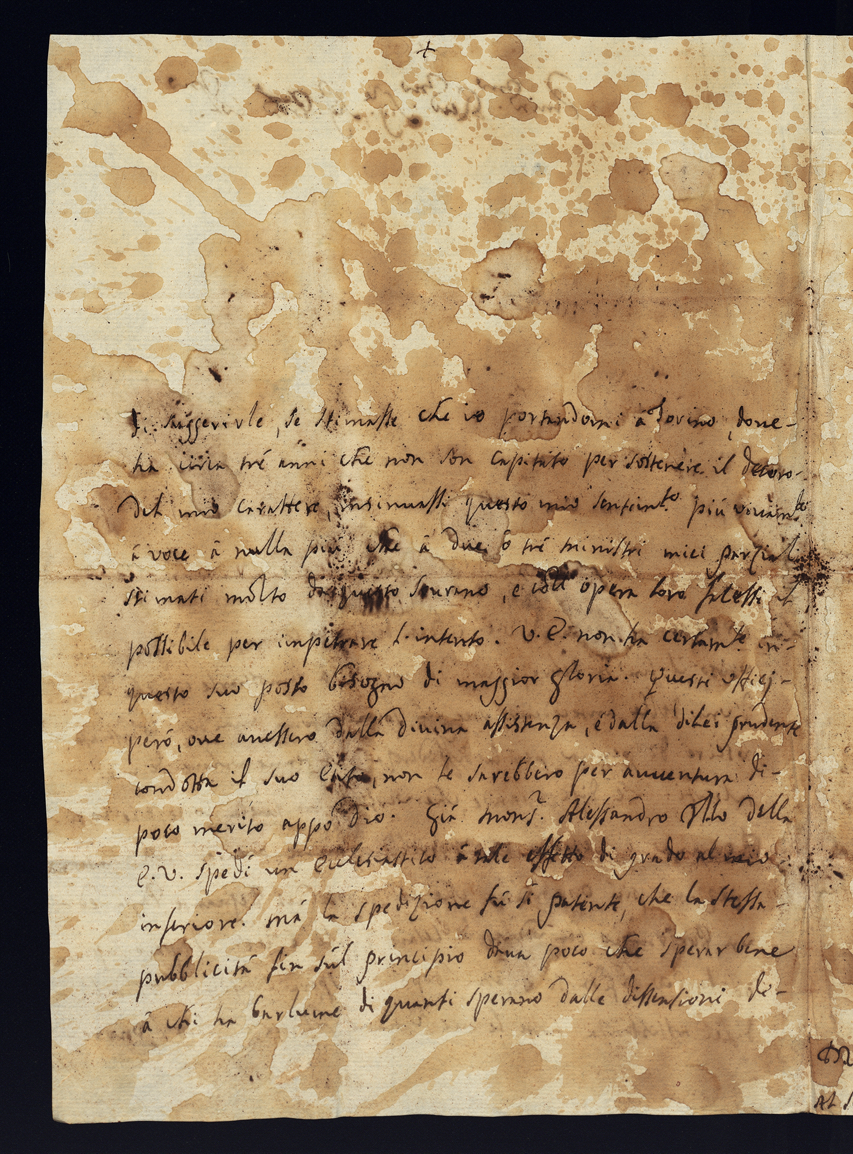 +
di suggerirle, se stimasse che io portandomi à Torino, doue-
ha circa trè anni che non son capitato per sostenere il decoro-
del mio carattere, insinuassi questo mio sentim.to più viuam.te
à voce à nulla più che à due, ò trè ministri miei parziali
stimati molto da questo Sourano, e coll' opera loro facessi il
possibile per impetrare l'intento. V. E. non ha certam.te in-
questo suo posto bisogno di maggior gloria. Questi officij-
però, oue auessero dalla diuina assistenza, e dalla di lei prudente
condotta il suo , non le sarebbero per auuentura di-
poco merito appò Dio. Già Mons.r Alessandro della
E. V. spedì un ecclesiastico à tale effetto di grado al mio
inferiore. Mà la spedizione fù sì patente, che la stessa-
pubblicità fin sùl principio daua poco che sperar bene
à chi ha barlume di quanti sperano dalle dissensioni de-